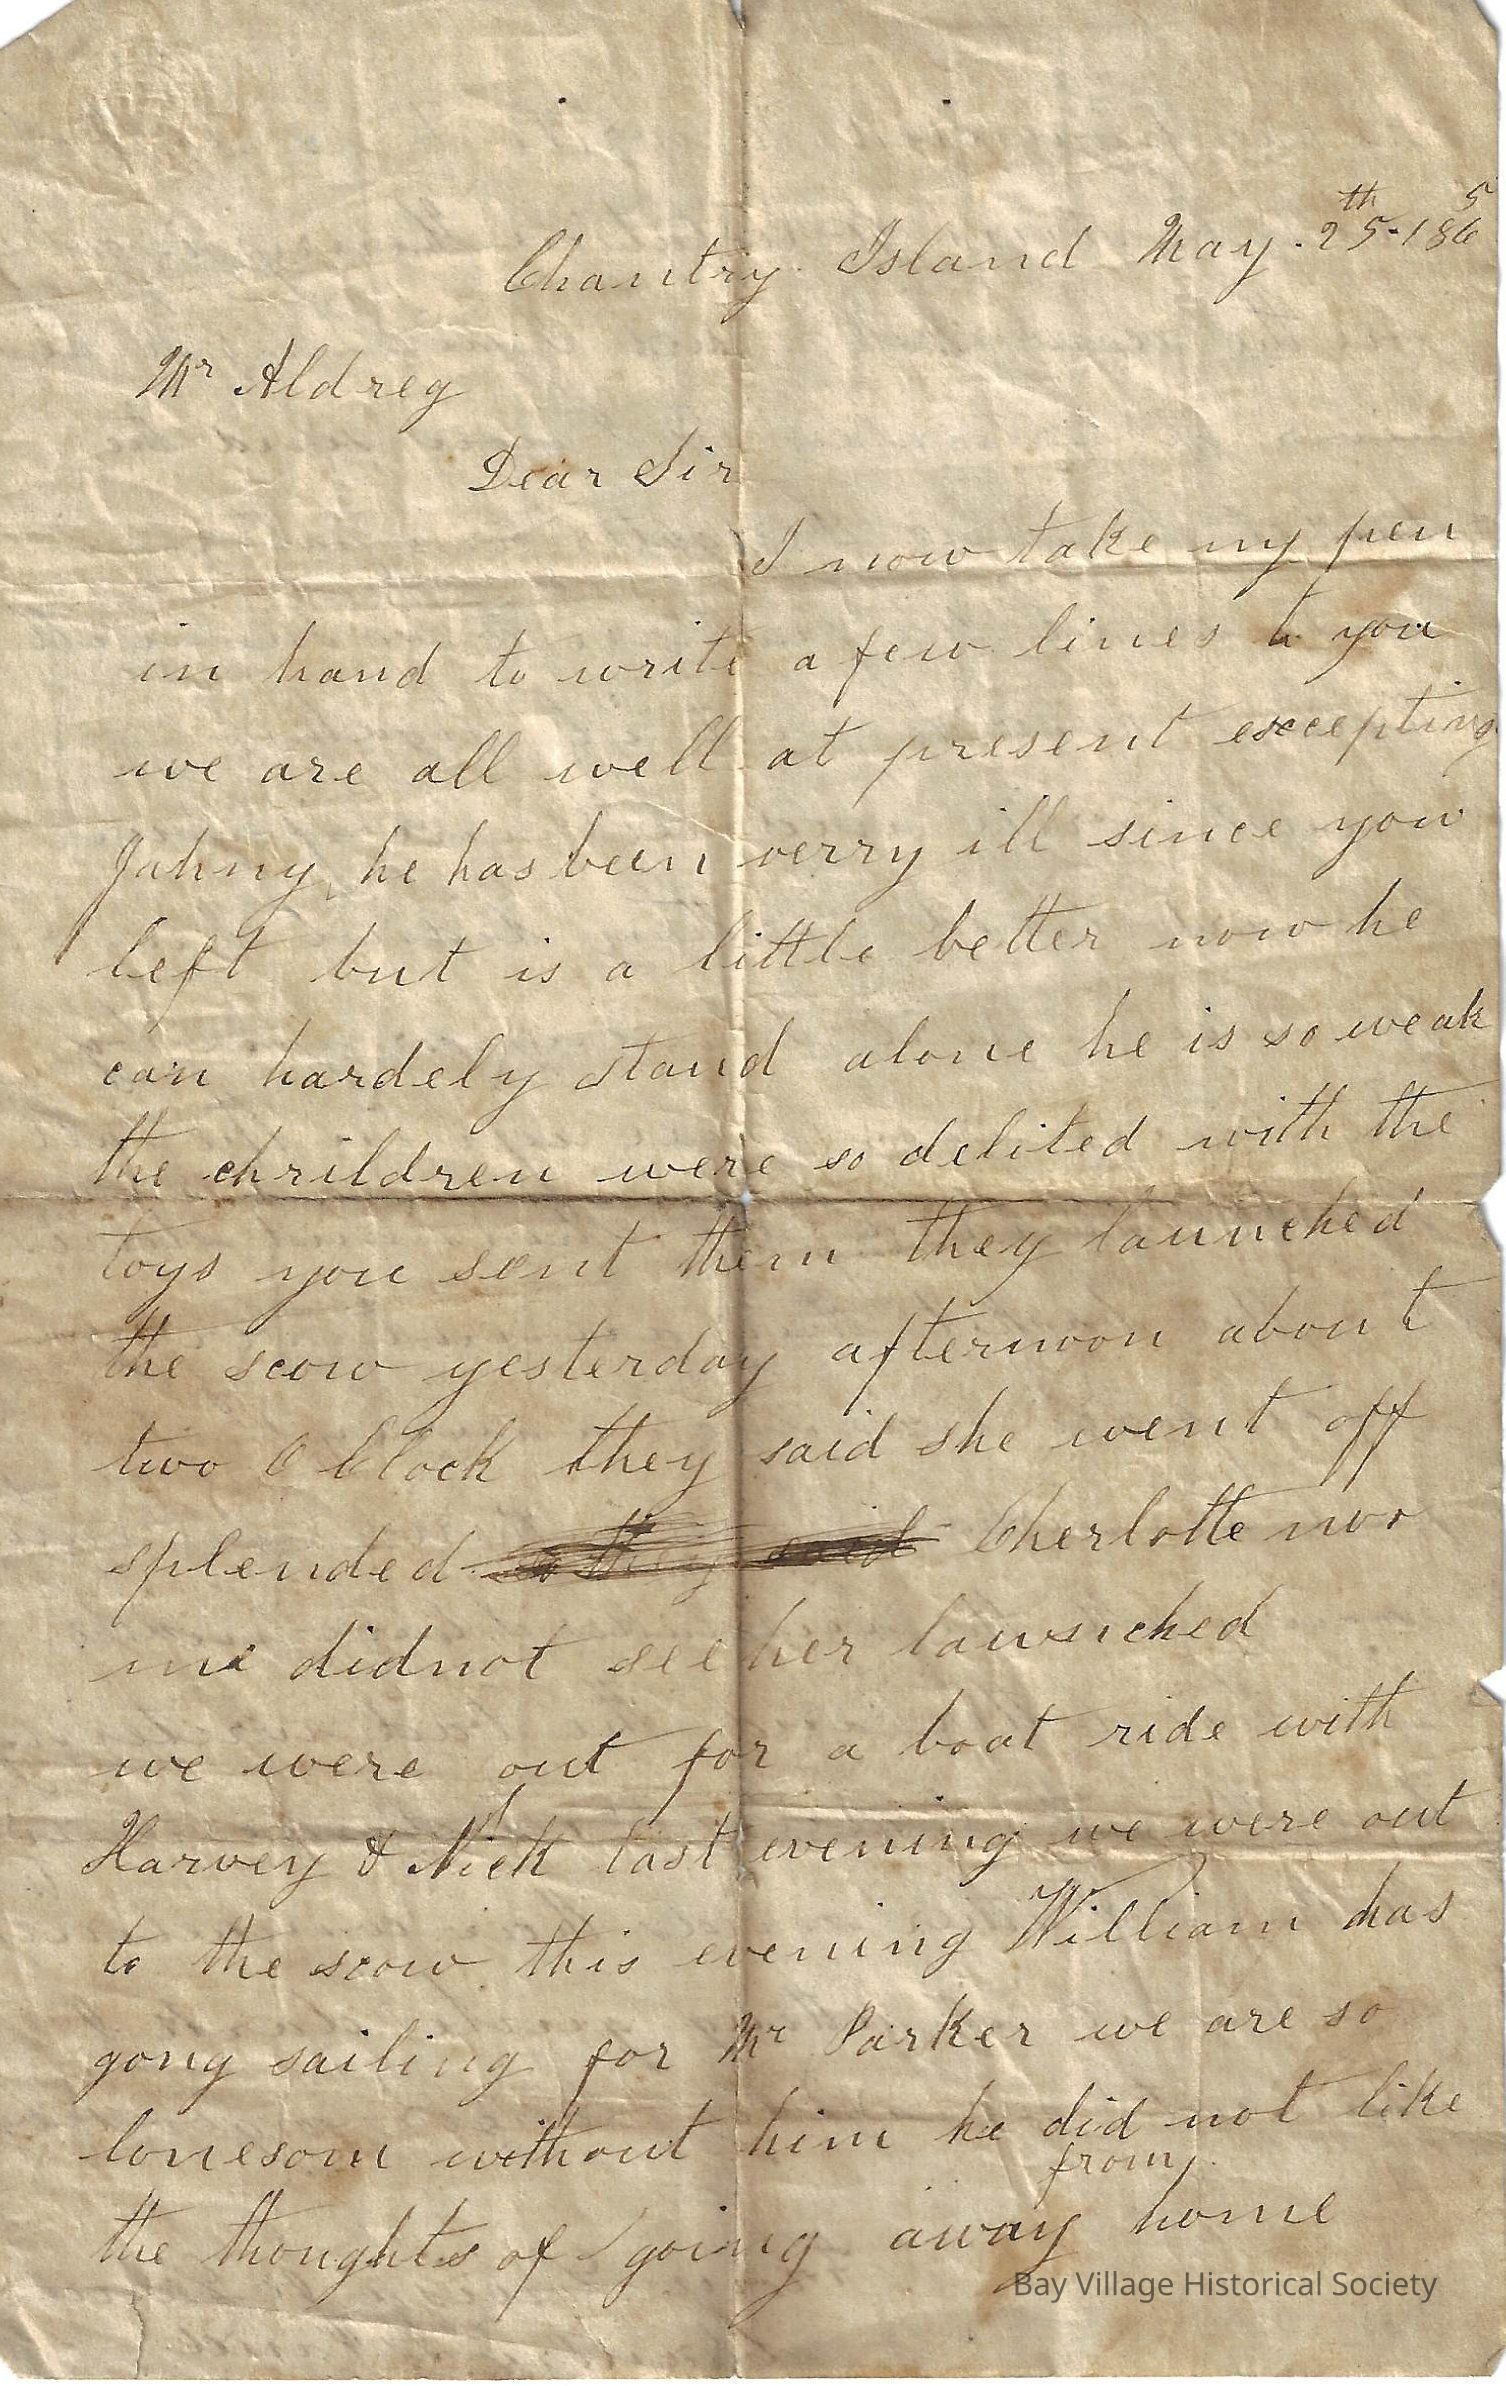 Chantry Island May. 25th. 1865
Mr Aldreg
Dear Sir
I now take my pen
in hand to write a few lines to you
we are all well at present excepting
Johny, he has been verry ill since you
left but is a little better now he
can hardely stand alone he is so weak
the chrildren were so delited with the
toys you sent them they launched
the scow yesterday afternoon about
two O Clock they said she went off
splended so they said Cherlotte nor
me didnot see her launched
we were out for a boat ride with
Harvey & Nick last evening we were out
to the scow this evening William has
gong sailing for Mr Parker we are so
lonesom without him he did not like
the thoughts of going away from home
Bay Village Historical Society